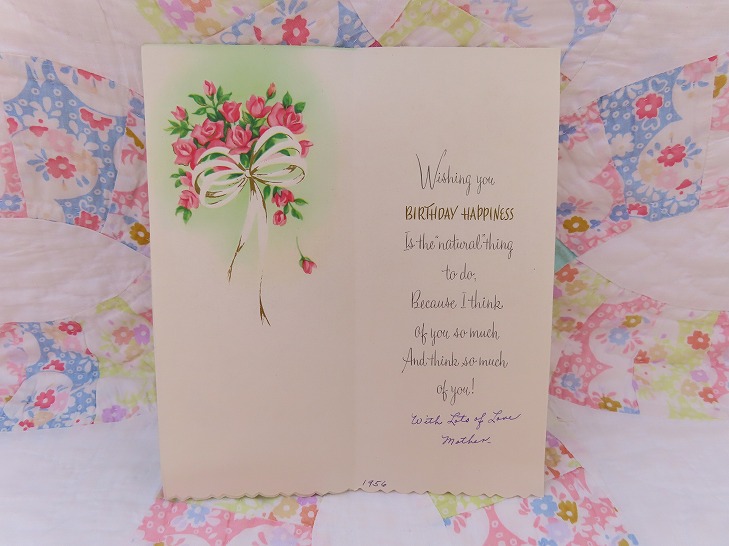 Wishing you
BIRTHDAY HAPPINESS
Is the "natural" thing
to do,
Because I think
of you so much
And think so much
of you!
With Lots of Love
Mother
1956